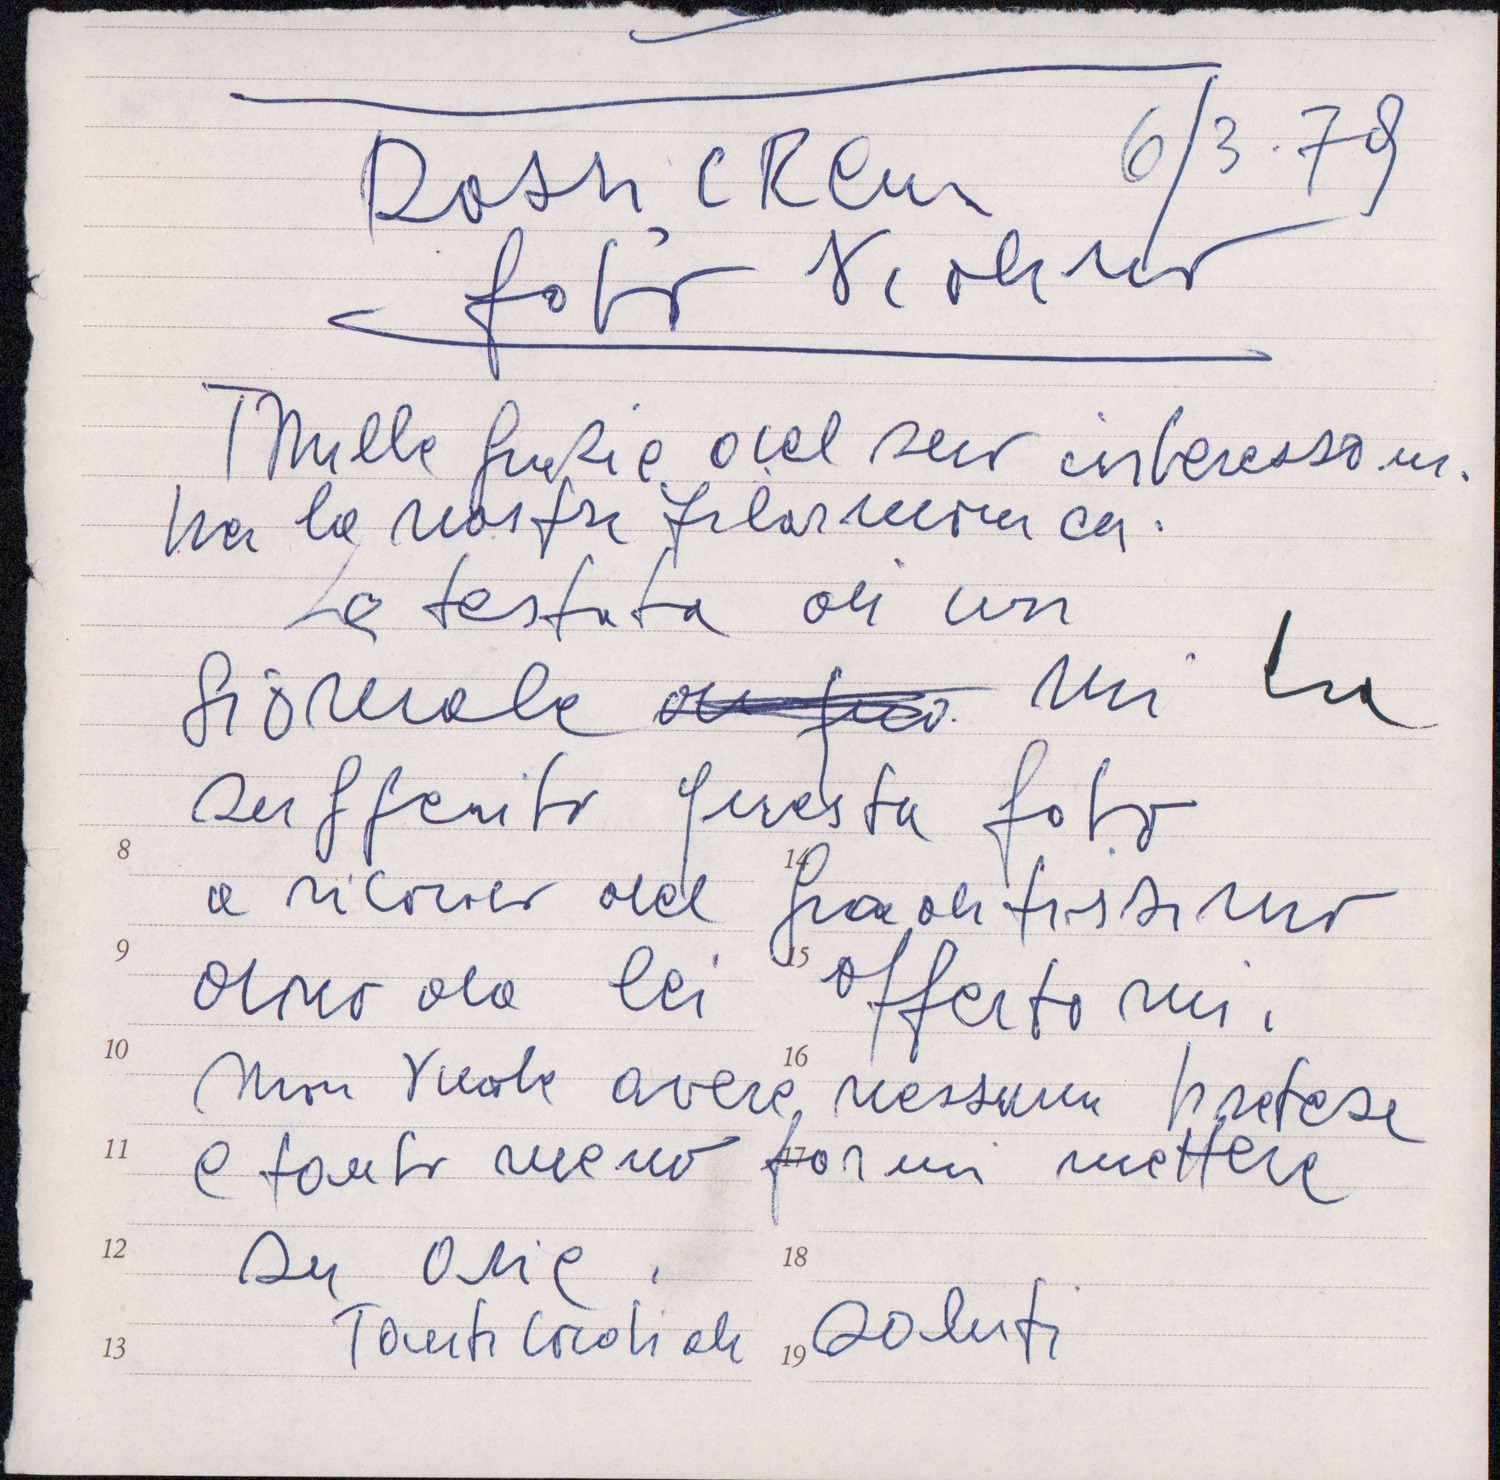 6/3.79
foto
Mille grazie del suo interessam.
per la nostra filarmonica.
La testata di un
giornale mi ha
suggerito questa foto
8 14
a ricordo del graditissimo
9 15
dono da lei offertomi.
10 16
Non vuole avere nessuna pretesa
11 17
e tanto meno farmi mettere
12 18
su arie.
Tanti cordiali saluti
13 19